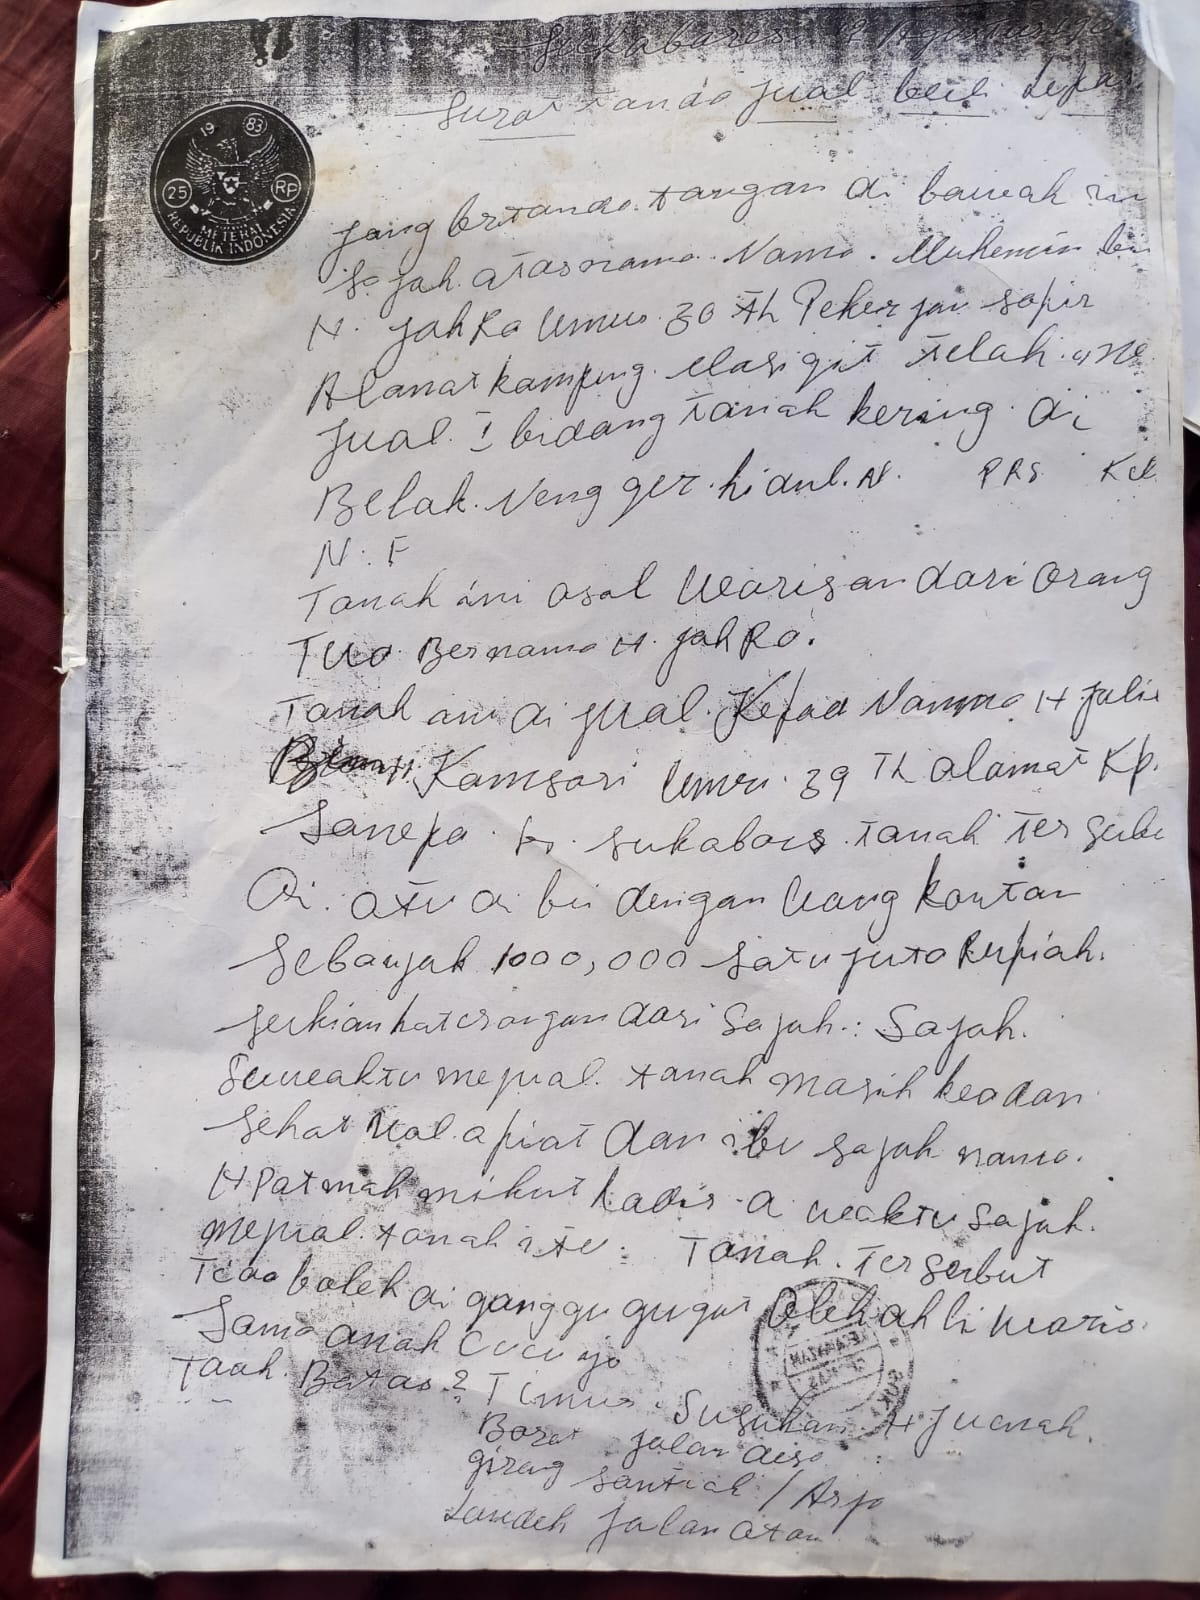 19 83
25 RP
METERAI
REPUBLIK INDONESIA
Sukabares 19 Agustus
Surat Tanda jual beli Lepas
jang bertanda tangan di bawah ini
Sajah atasnama Nama. Muhemin bi
H. jahRa Umur 30 th Pekerjan sopir
Alamat kampung Masigit telah me
jual 1 bidang tanah kering di
Belak Nengger hidul. N. PRS Kel
N. F
Tanah ini asal Warisan dari Orang
Tua Bernama H. jahRa.
Tanah ini di jual Kepad Namma H jali
Kamsari Umur 39 Th alamat Kp.
Sanepa Ds. Sukabars tanah ter sebu
Di. atu di bli dengan Uang kontan
Sebanjak 1000,000 satu juta Rupiah.
Sekian katerangan dari Sajah: Sajah.
Sewaktu mejual tanah masih keadan
Sehat Wal apiat dan ibu sajah nama
H Patmah mikut hadir di waktu Sajah.
mejual tanah itu: Tanah Tersebut
Tida boleh di ganggu gugat Oleh ahli Waris
Sama anah Cucu jo
Taah Batas? Timur Susukan H Juenah.
Barat jalan desa
gireng Santiah / Arja
Landeh jalan atan